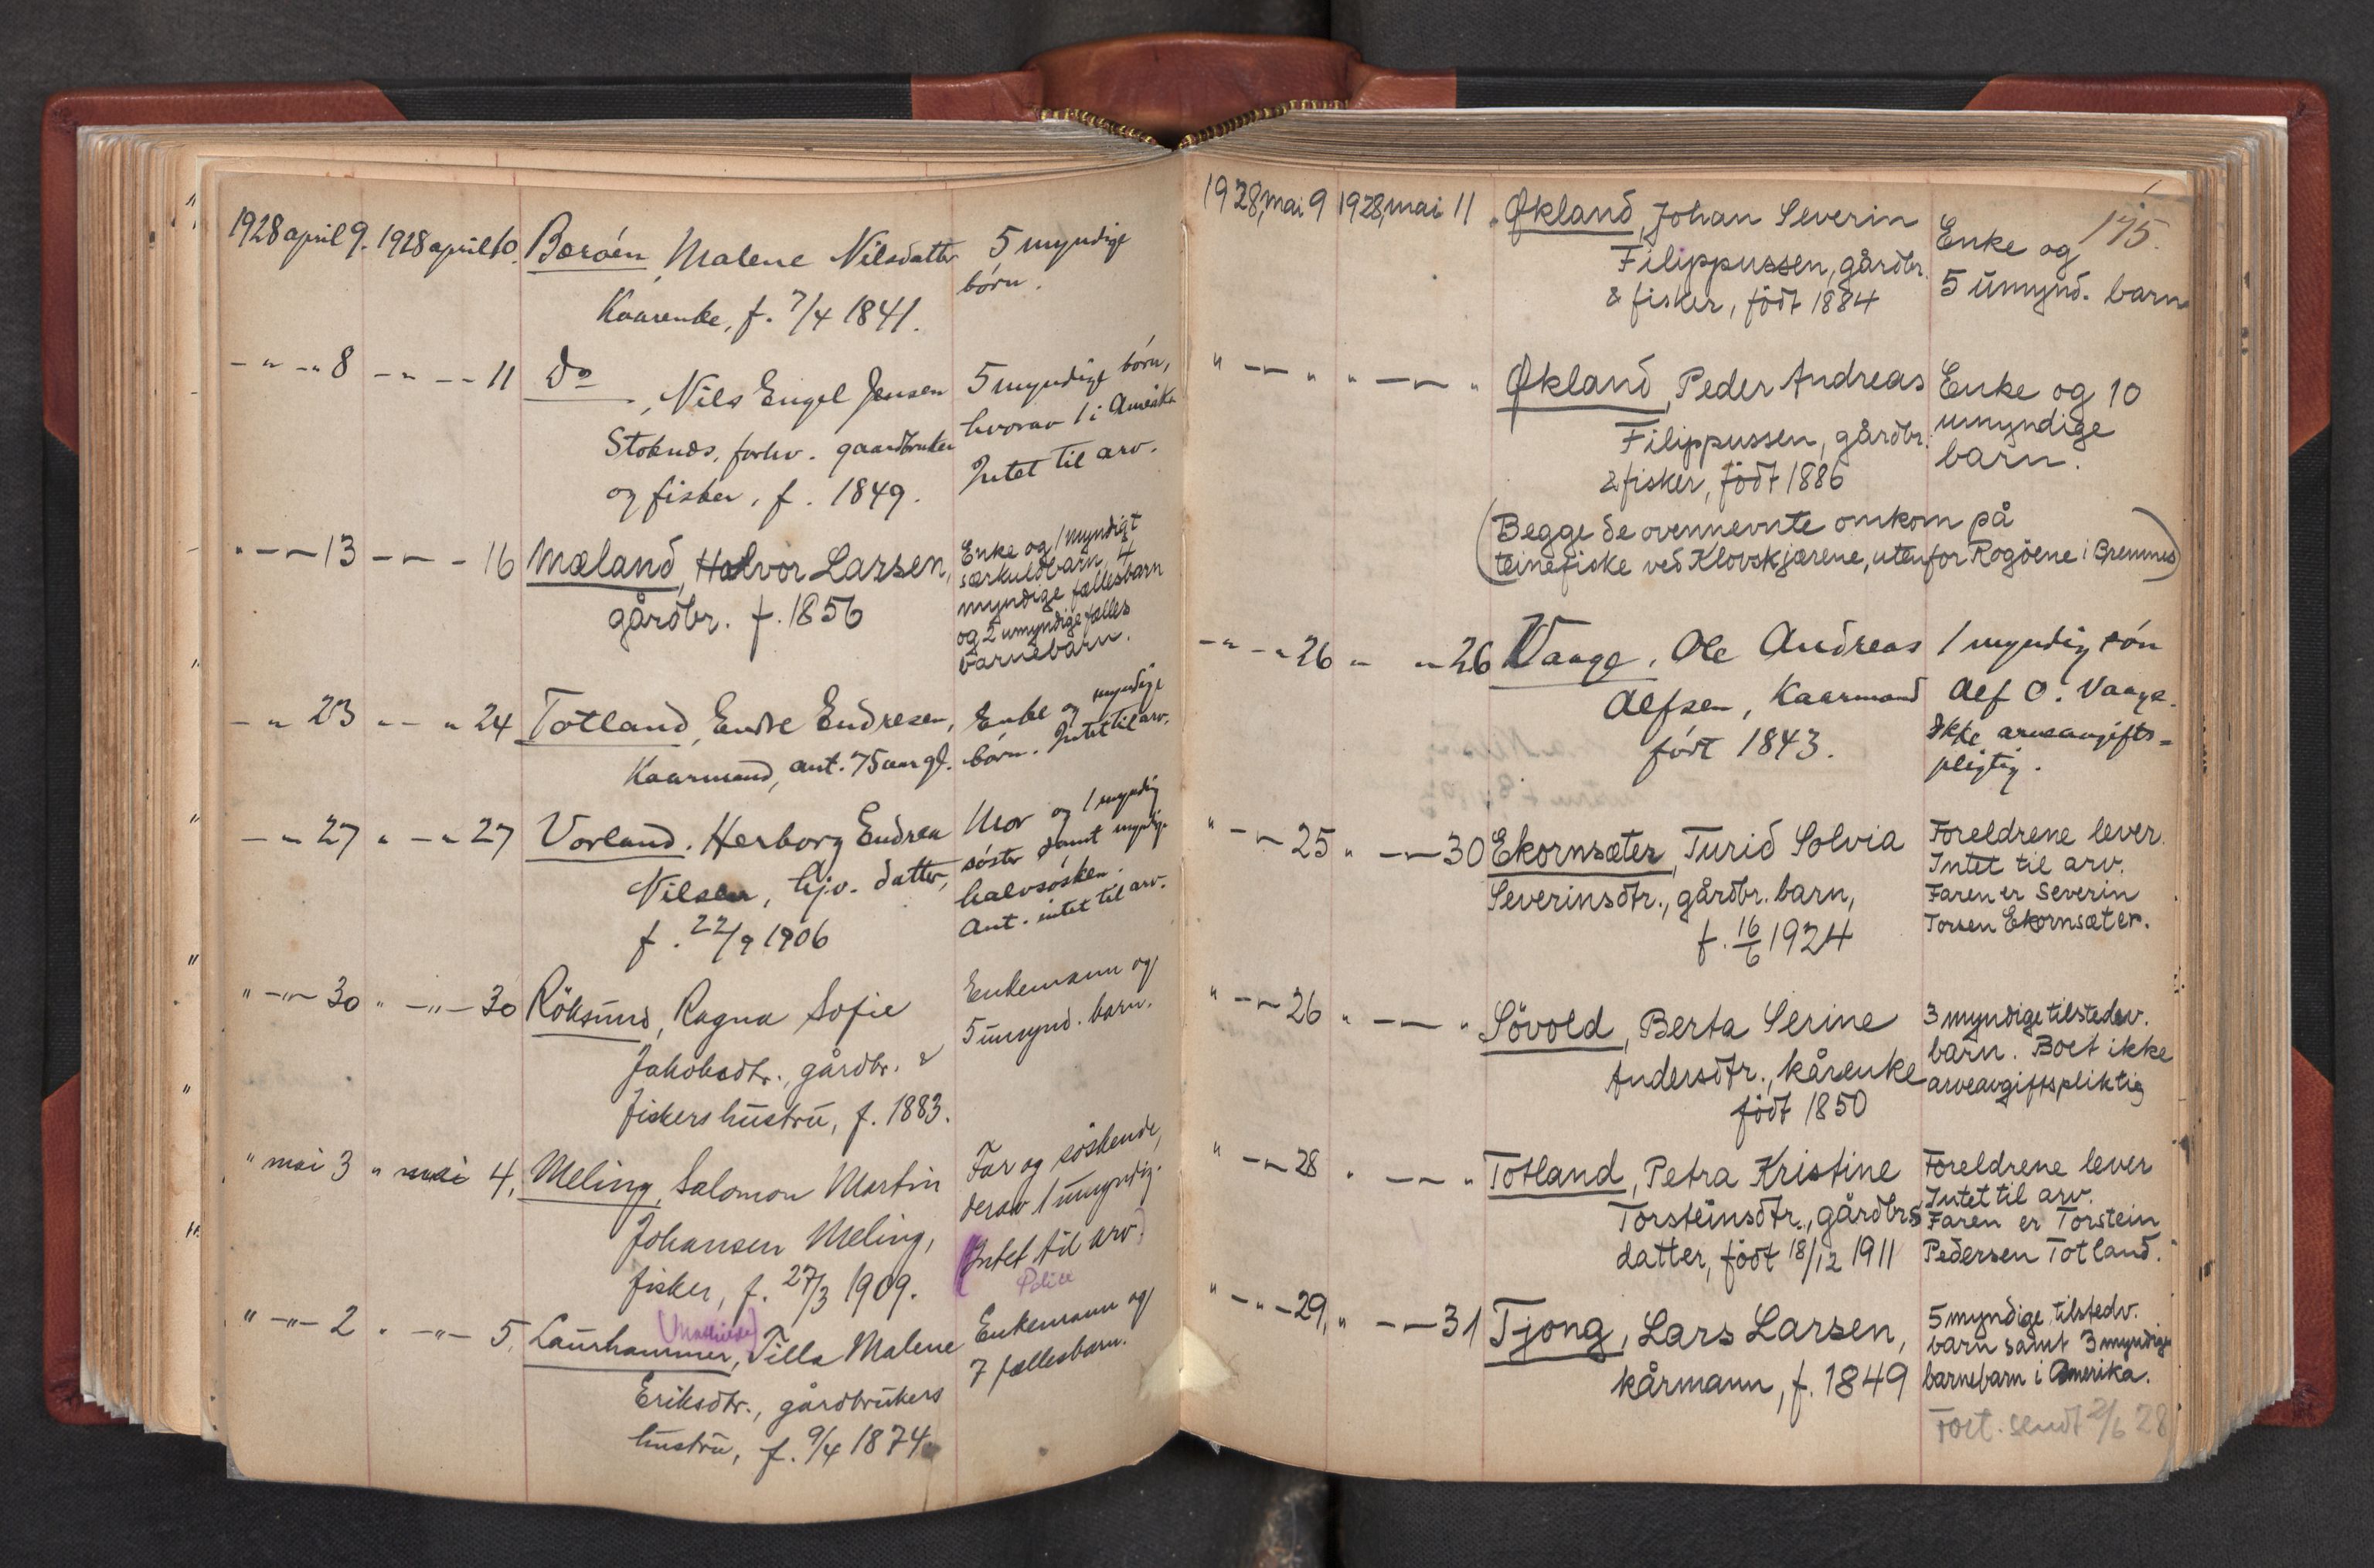 1928 april 9. 1928 april 10. Børøen, Malene Nilsdatter 5 myndige
Kaarenke, f. 7/4 1841. børn.
- " - " 8 - " - - 11 Do, Nils Engel Jensen 5 myndige børn,
Stoknes, forhv. gaardbruker hvorav 1 i Amerika
og fisker, f. 1849. Intet til arv.
" - - 13 - - - 16 Mæland, Halvor Larsen, Enke og 1 myndigt
gårdbr. f. 1856 særkuldbarn, 4
myndige fællesbarn
og 2 umyndige fælles
barnebarn.
- " 23 " - " 24 Totland, Endre Endresen, Enke og myndige
Kaarmand, ant. 75 aar gl. børn. Intet til arv.
- " 27 " - " 27 Vorland, Herborg Endrea Mor og 1 myndig
Nilsen, hjv. datter, søster samt myndige
f. 22/9 1906 halvsøsken.
Ant. intet til arv.
" - " - 30 " - " - 30 Röksund, Ragna Sofie Enkemann og
Jakobsdtr., gårdbr. & 5 umynd. barn.
fiskers hustru, f. 1883.
" mai 3 " mai 4. Meling, Salomon Martin Far og söskende,
Johansen Meling, derav 1 umyndig.
fisker, f. 27/3 1909. (Intet til arv.)
" - " - 2 " - " - 5. Laurhammer, Tilla Malene Enkemann og
Eriksdtr., gårdbrukers 7 fællesbarn.
hustru, f. 9/4 1874.
175.
1928, mai 9 1928, mai 11 Økland, Johan Severin Enke og
Filippussen, gårdbr. 5 umynd. barn
& fisker, födt 1884
" - - " " - - " Økland, Peder Andreas Enke og 10
Filippussen, gårdbr. umyndige
& fisker, födt 1886 barn.
(Begge de ovennevnte omkom på
teinefiske ved Klovskjærene, utenfor Rogöene i Bremnes)
- " - " 26 " " 26 Vaage, Ole Andreas 1 myndig søn
Alfsen, Kaarmand Alf O. Vaage.
født 1843. Ikke arveavgifts-
pligtig.
" - - 25 " - - 30 Ekornsæter, Turid Solvia Foreldrene lever.
Severinsdtr., gårdbr. barn, Intet til arv.
f. 16/6 1924 Faren er Severin
Torsen Ekornsæter.
" - - 26 " - - " Sövold, Berta Serine 3 myndige tilstedev.
Andersdtr., kårenke barn. Boet ikke
födt 1850 arveavgiftspliktig
" - - 28 " - - " Totland, Petra Kristine Foreldrene lever
Torsteinsdtr., gårdbrs Intet til arv.
datter, födt 18/12 1911 Faren er Torstein
Pedersen Totland.
" - " - 29, " - - 31 Tjong, Lars Larsen, 5 myndige tilstedv.
kårmann, f. 1849 barn samt 3 myndige
barnebarn i Amerika.
Fort. sendt 2/6 28